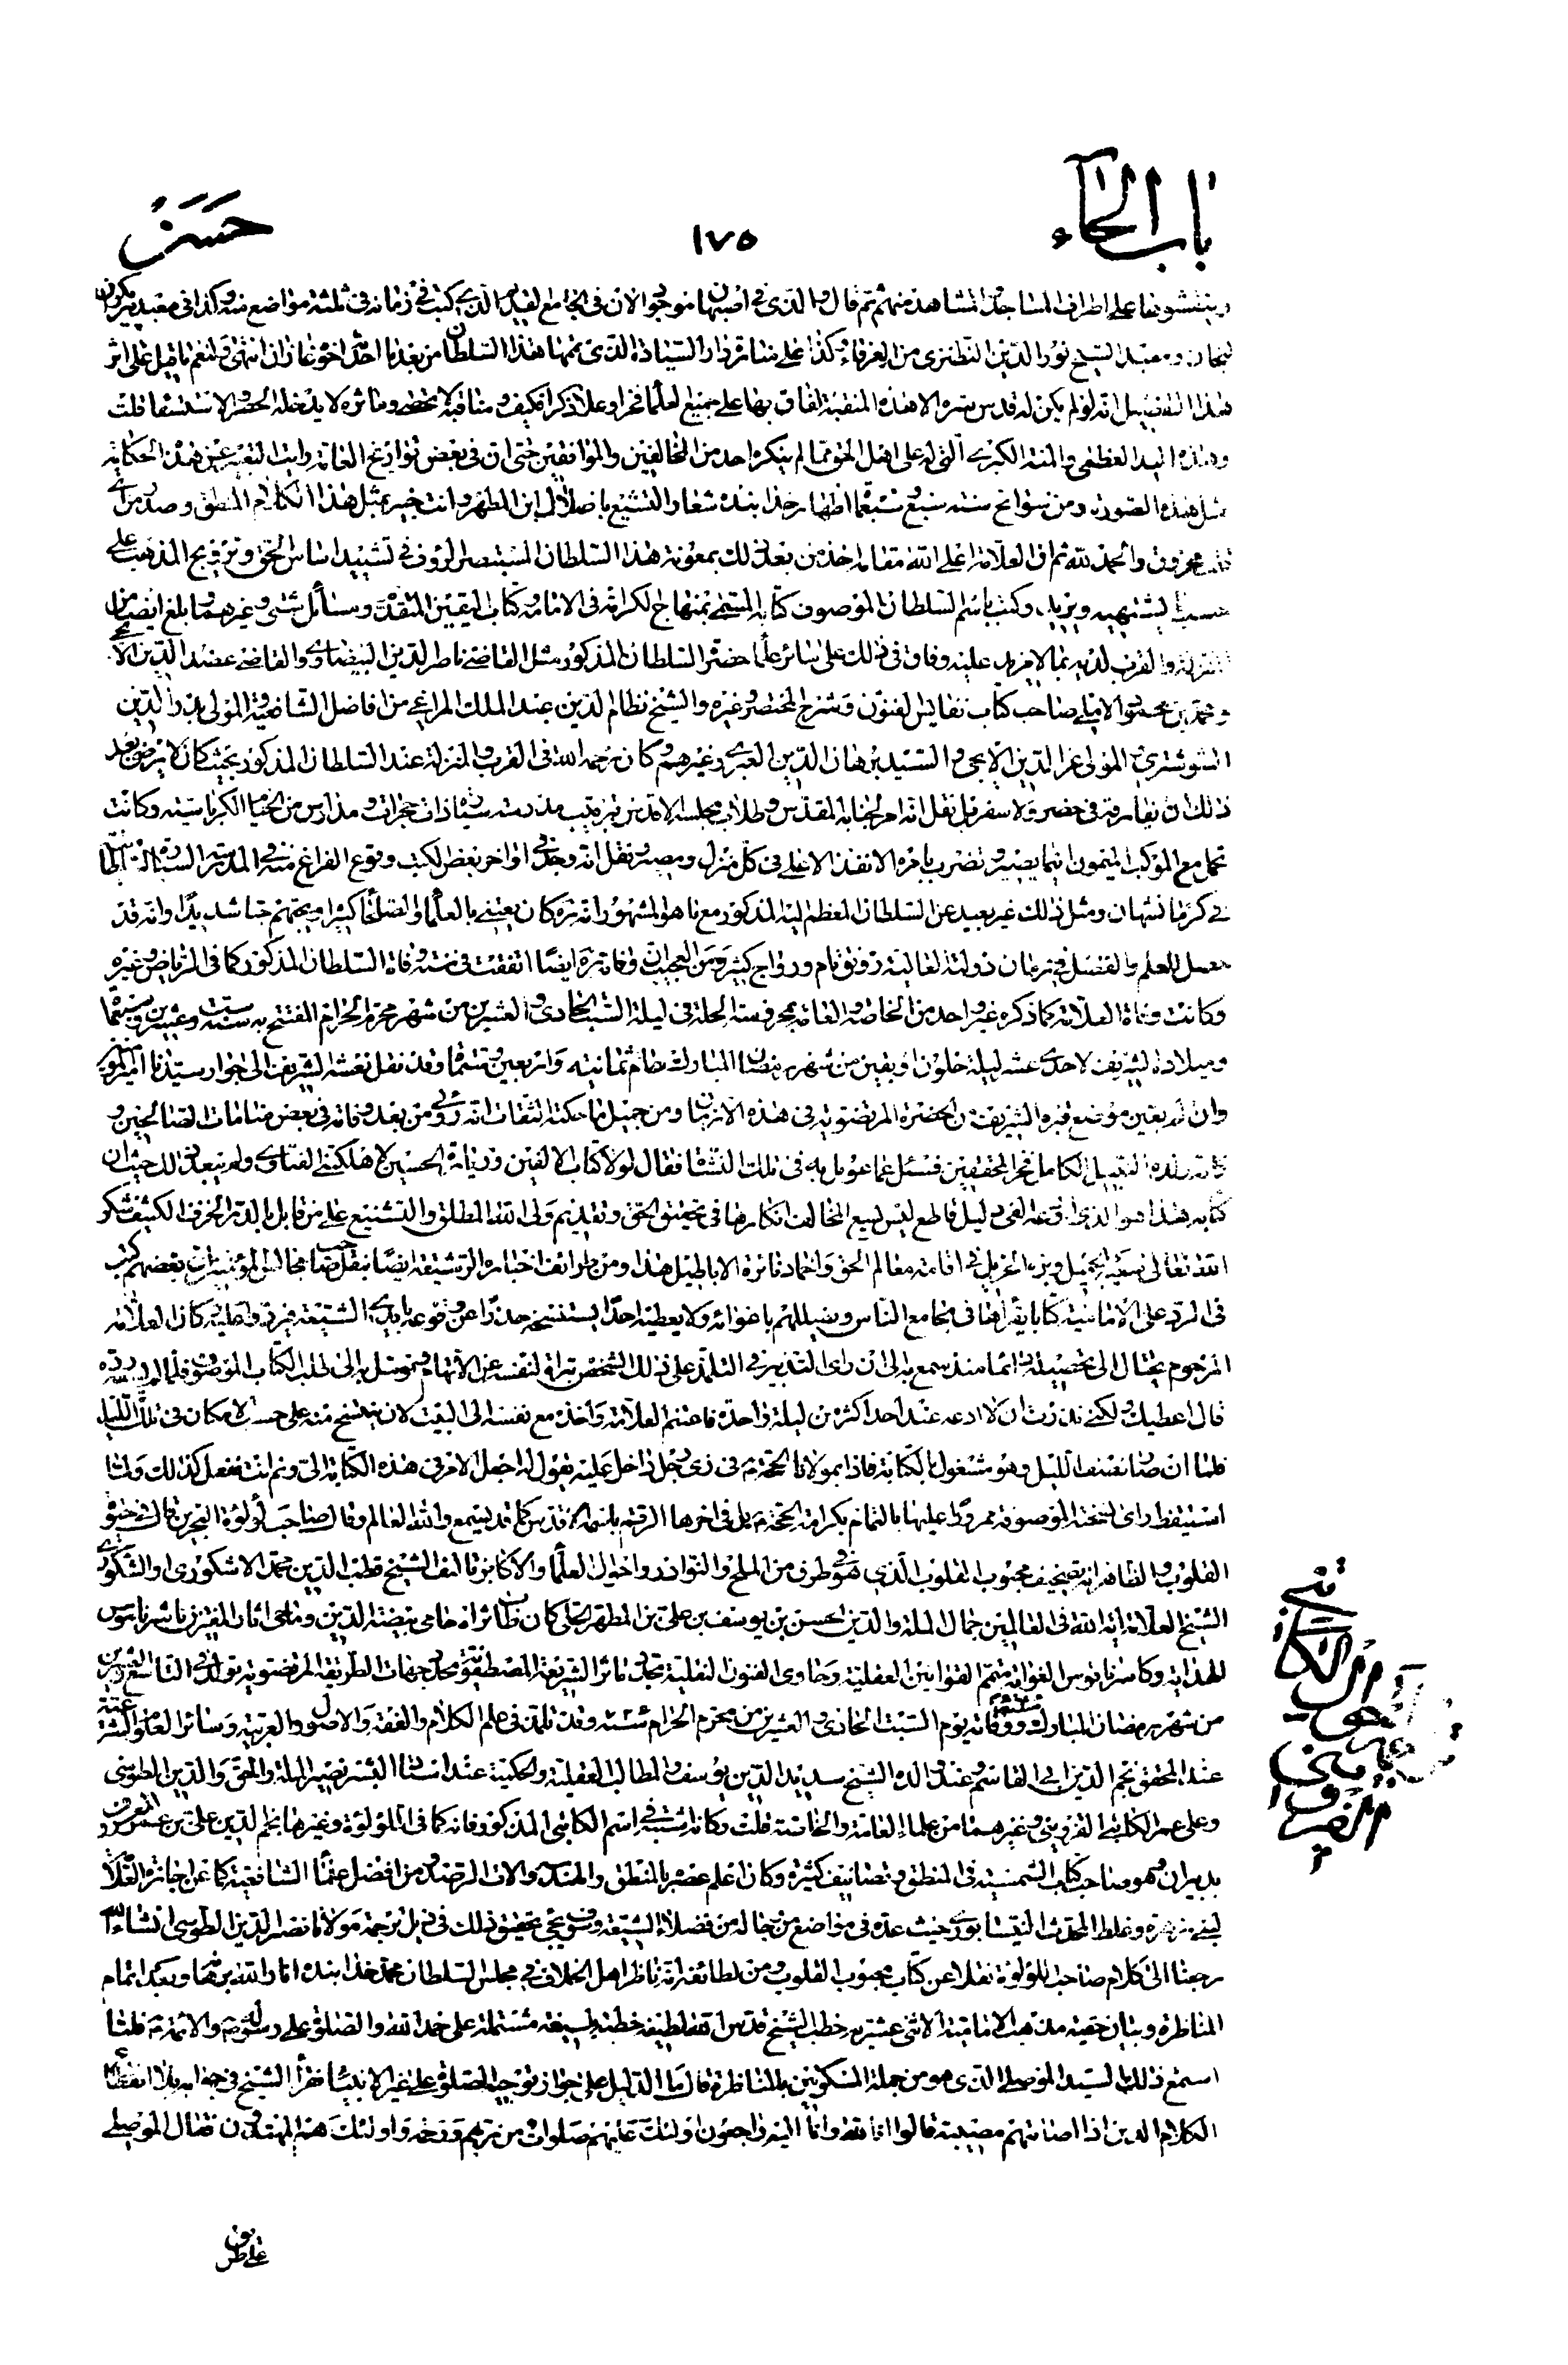 باب الحاء
١٧٥
حسن
وينقشونها على اطراف المساجد والمشاهد منهم ثم قال والذي في اصبهان موجود الان في الجامع القديم الذي كتب في زمانه في ثلثة مواضع منه وكذا في معبد پير بكران
لنجان ومعبد الشيخ نور الدين النطنزى من العرفاء وكذا على منارة دار السيادة التى تممها هذا السلطان من بعد ما احدثها اخوه غازان انتهى ونعم ما قيل على اثر
هذا التفصيل انه لو لم يكن له قدس سره الا هذه المنقبة لفاق بها على جميع العلماء فخرا وعلا ذكرا فكيف ومناقبه لا تحصى ومآثره لا يدخلها الحصر والاستقصا قلت
وهذه اليد العظمى والمنة الكبرى التى له على اهل الحق مما لم ينكره احد من المخالفين والموافقين حتى ان فى بعض تواريخ العامة رايت التعبير عن هذه الحكاية
بمثل هذه الصورة ومن سوانح سنة سبع وسبعمائة اظهار خدا بنده شعار التشيع باضلال ابن المطهر وانت خبير بمثل هذا الكلام المنطق وصدر من اى
قلب محروق والحمد لله ثم ان العلامة اعلى الله مقامه اخذ من بعد ذلك بمعونة هذا السلطان المستبصر الرؤف في تشييد اساس الحق وترويج المذهب على
حسب ما يشتهيه ويريد وكتب باسم السلطان الموصوف كتابه المسمى بمنهاج الكرامة فى الامامة وكتاب اليقين المتقدم ومسائل شتى وغيرهما وبلغ ايضا من
المنزلة والقرب لديه بما لا مزيد عليه وفاق في ذلك على سائر علماء حضرة السلطان المذكور مثل القاضى ناصر الدين البيضاوى والقاضى عضد الدين الايجى
ومحمد بن محمود الاملى صاحب كتاب نفايس الفنون وشرح المختصر وغيره والشيخ نظام الدين عبد الملك المراغى من افاضل الشافعية والمولى بدر الدين
الشوشترى والمولى عز الدين الايجى والسيد برهان الدين العبرى وغيرهم وكان رحمه الله فى القرب والمنزلة عند السلطان المذكور بحيث كان لا يرضى بعد
ذلك ان يفارقه فى حضر ولا سفر بل نقل انه امر لجنابه المقدس وطلاب مجلسه الاقدس بترتيب مدرسة سيارة ذات حجرات ومدارس من الخيام الكرباسية وكانت
تحمل مع الموكب الميمون اينما يصير وتضرب بامره الانفذ الاعلى فى كل منزل ومصير ونقل انه وجد فى اواخر بعض الكتب وقوع الفراغ منه في المدرسة السيارة السلطانية
فى كرمانشهان ومثل ذلك غير بعيد عن السلطان المعظم اليه المذكور مع ما هو المشهور انه ره كان يعتنى بالعلماء والصلحاء كثيرا ويحبهم حبا شديدا وانه قد
حصل للعلم والفضل في زمان دولته العالية رونق تام ورواج كثير ومن العجب ان وفاته ره ايضا اتفقت فى سنة وفاة السلطان المذكور كما فى الرياض وغيره
وكانت وفاة العلامة كما ذكره غير واحد من الخاصة والعامة بمحروسة الحلة فى ليلة السبت الحادى والعشرين من شهر محرم الحرام المفتتح به سنة ست وعشرين وسبعمائة
وميلاده الشريف لاحدى عشر ليلة خلون او بقين من شهر رمضان المبارك عام ثمانية واربعين وستمائة وقد نقل نعشه الشريف الى جوار سيدنا امير المؤمنين
وان لم يتعين موضع قبره الشريف من الحضرة المرتضوية فى هذه الازمان ومن جميل ما حكته الثقات انه رؤى من بعد وفاته فى بعض منامات الصالحين
ولده النبيل الكامل فخر المحققين فسئل عما عومل به فى تلك النشاة فقال لولا كتاب الالفين وزيارة الحسين لاهلكتنى الفتاوى ولم يبعد ذلك حيث ان
كتابه هذا هو الذى اودعه الفى دليل قاطع ليس يسع المخالف انكارها فى تحقيق الحق وتقديم ولى الله المطلق والتشنيع على من قابل بالدر الخزف الكشف شكر
الله تعالى سعيه الجميل وبره الجزيل فى اقامة معالم الحق واخماد نائرة الاباطيل هذا ومن طرائف اخباره الرشيقة ايضا بنقل صاحب مجالس المؤمنين ان بعضهم كتب
فى الرد على الامامية كتابا يقرأها فى مجامع الناس ويضلهم باغوائه ولا يعطيه احدا يستنسخه حذرا عن وقوعه بايدى الشيعة فيردوا عليه وكان العلامة
المرحوم يحتال الى تحصيله دائما منذ سمع به الى ان راى التدبير في التلمذ على ذلك الشخص تبرئة لنفسه عن الاتهام وتوسل به الى طلب الكتاب الموصوف فلما لم يسعه رده
قال اعطيك ولكنى نذرت ان لا ادعه عند احد اكثر من ليلة واحدة فاغتنم العلامة واخذه مع نفسه الى البيت لان ينتسخ منه على حسب الامكان فى تلك الليلة
فلما ان صار نصف الليل وهو مشغول بالكتابة فاذا بمولانا الحجة ع فى زى رجل داخل عليه يقول له اجعل الامر فى هذه الكتابة الى ونم انت ففعل كذلك ولما
استيقظ راى نسخته الموصوفة ممرورا عليها بالتمام بكرامة الحجة ع بل فى اخرها الرقم باسمه الاقدس كما قد يسمع والله العالم وقال صاحب لؤلؤة البحرين قال في حيوة
القلوب والظاهر انه تصحيف محبوب القلوب الذي هو فى طرف من الملح والنوادر واحوال العلماء والاكابر تاليف الشيخ قطب الدين محمد الاشكورى او الشكورى
الشيخ العلامة اية الله فى العالمين جمال الملة والدين الحسن بن يوسف بن على بن المطهر الحلى كان طاب ثراه حامى بيضة الدين وماحى اثار المفسرين ناشر ناموس
الهداية وكاسر ناقوس الغواية متمم القوانين العقلية وحاوى الفنون النقلية مجدد ماثر الشريعة المصطفوية محدد جهات الطريقة المرتضوية تولد فى التاسع والعشرين
من شهر رمضان المبارك ووفاته يوم السبت الحادى والعشرين من محرم الحرام وقد تلمذ فى علم الكلام والفقه والاصول والعربية وسائر العلوم الشرعية
عند المحقق نجم الدين ابى القاسم وعند والده الشيخ سديد الدين يوسف والمطالب العقلية والحكمية عند استاد البشر نصير الملة والحق والدين الطوسى
وعلى عمر الكاتبى القزوينى وغيرهما من علماء العامة والخاصة قلت وكانه اشتبه فى اسم الكاتبى المذكور فانه كما فى اللؤلؤة وغيرها نجم الدين على بن عمر المعروف
بدبيران وهو صاحب كتاب الشمسية فى المنطق وتصانيف كثيرة وكان اعلم عصره بالمنطق والهندسة والات الرصد ومن افضل علماء الشافعية كما عن اجازة العلامة
لبنى زهرة وغلط المحدث النيشابورى حيث عده فى مواضع من رجاله من فضلاء الشيعة وسيجئ تحقيق ذلك فى ذيل ترجمة مولانا نصير الدين الطوسى انشاء الله
رجعنا الى كلام صاحب اللؤلؤة نقلا عن كتاب محبوب القلوب ومن لطائفه انه ناظر اهل الخلاف في مجلس السلطان محمد خدا بنده انار الله برهانه وبعد اتمام
المناظرة وبيان حقية مذهب الامامية الاثنى عشرية خطب الشيخ قدس الله لطيفه خطبة بليغة مشتملة على حمد الله والصلوة على رسوله ص والائمة ع فلما
استمع ذلك السيد الموصلى الذى هو من جملة المسكوتين بالمناظرة قال ما الدليل على جواز توجيه الصلوة على غير الانبياء فقرأ الشيخ فى جوابه بلا انقطاع
الكلام الذين اذا اصابتهم مصيبة قالوا انا لله وانا اليه راجعون اولئك عليهم صلوات من ربهم ورحمة واولئك هم المهتدون فقال الموصلى
على طريق